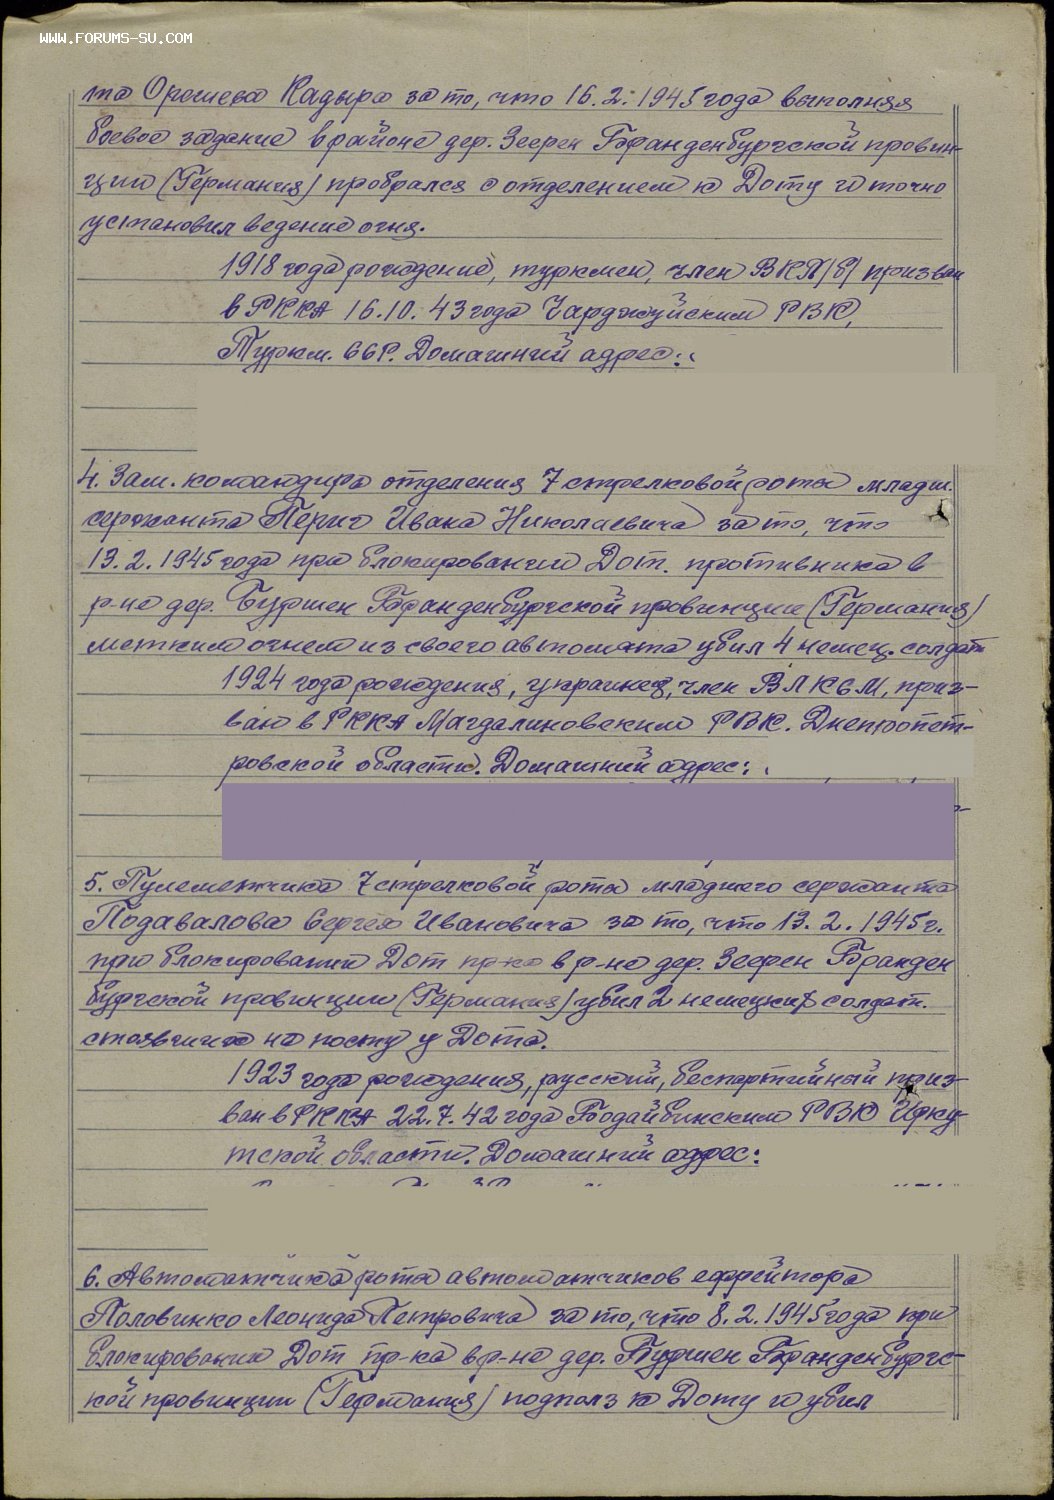 WWW.FORUMS-SU.COM
та Орошева Кадыра за то, что 16.2.1945 года выполняя
боевое задание в районе дер. Зеерен Бранденбургской провин-
ции (Германия) пробрался с отделением к Доту и точно
установил ведение огня.
1918 года рождение, туркмен, член ВКП/б/ призван
в РККА 16.10.43 года Чарджуйским РВК,
Туркм. ССР. Домашний адрес:
4. Зам. командира отделения 7 стрелковой роты младш.
сержанта Перис Ивана Николаевича за то, что
13.2.1945 года при блокировании Дот. противника в
р-не дер. Буршен Бранденбургской провинции (Германия)
метким огнем из своего автомата убил 4 немец. солдат
1924 года рождения, украинец, член ВЛКСМ, приз-
ван в РККА Магдалиновским РВК. Днепропет-
ровской области. Домашний адрес:
5. Пулеметчика 7 стрелковой роты младшего сержанта
Подавалова Сергея Ивановича за то, что 13.2.1945 г.
при блокировании Дот пр-ка в р-не дер. Зеерен Бранден
бургской провинции (Германия) убил 2 немецких солдат.
стоявших на посту у Дота.
1923 года рождения, русский, беспартийный приз-
ван в РККА 22.7.42 года Бодайбинским РВК Ирку-
тской области. Домашний адрес:
6. Автоматчика роты автоматчиков ефрейтора
Половинко Леонида Петровича за то, что 8.2.1945 года при
блокировании Дот пр-ка в р-не дер. Буршен Бранденбургс-
кой провинции (Германия) подполз к Доту и убил